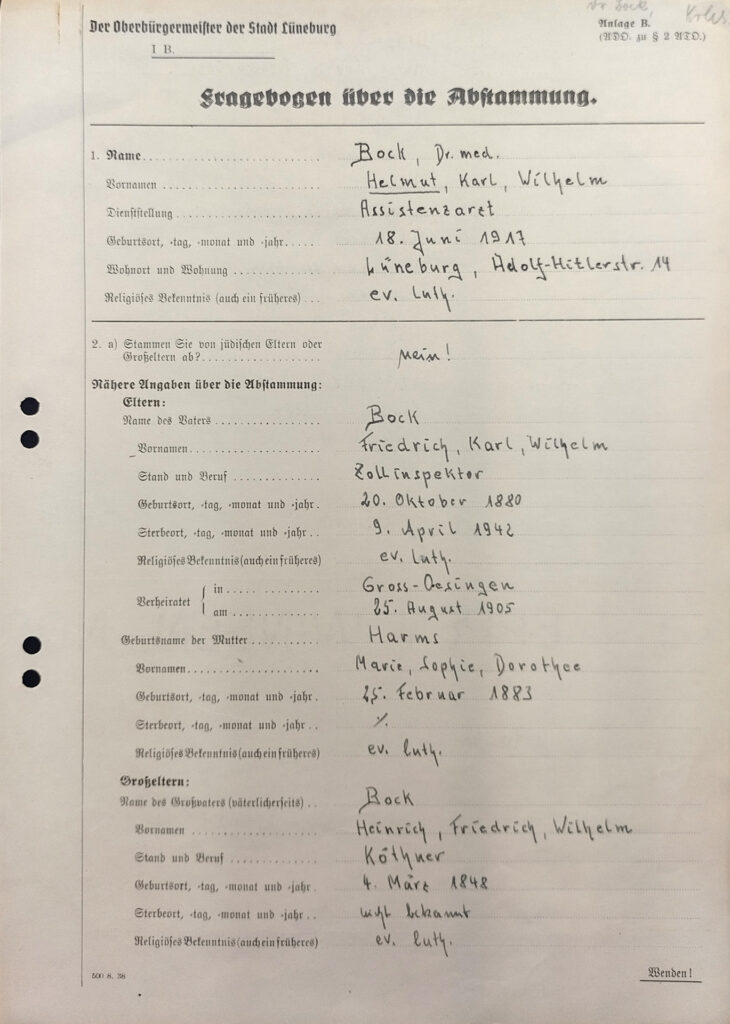 Dr Bock,
Der Oberbürgermeister der Stadt Lüneburg
I B.
Anlage B.
(ADO. zu § 2 ATO.)
Fragebogen über die Abstammung.
1. Name Bock, Dr. med.
Vornamen Helmut, Karl, Wilhelm
Dienststellung Assistenzarzt
Geburtsort, -tag, -monat und -jahr 18. Juni 1917
Wohnort und Wohnung Lüneburg, Adolf-Hitlerstr. 14
Religiöses Bekenntnis (auch ein früheres) ev. luth.
2. a) Stammen Sie von jüdischen Eltern oder
Großeltern ab? nein!
Nähere Angaben über die Abstammung:
Eltern:
Name des Vaters Bock
Vornamen Friedrich, Karl, Wilhelm
Stand und Beruf Zollinspektor
Geburtsort, -tag, -monat und -jahr 20. Oktober 1880
Sterbeort, -tag, -monat und -jahr 9. April 1942
Religiöses Bekenntnis (auch ein früheres) ev. luth.
Verheiratet { in Gross-Oesingen
am 25. August 1905
Geburtsname der Mutter Harms
Vornamen Marie, Sophie, Dorothee
Geburtsort, -tag, -monat und -jahr 25. Februar 1883
Sterbeort, -tag, -monat und -jahr ./.
Religiöses Bekenntnis (auch ein früheres) ev. luth.
Großeltern:
Name des Großvaters (väterlicherseits) Bock
Vornamen Heinrich, Friedrich, Wilhelm
Stand und Beruf Köthner
Geburtsort, -tag, -monat und -jahr 4. März 1848
Sterbeort, -tag, -monat und -jahr nicht bekannt
Religiöses Bekenntnis (auch ein früheres) ev. luth.
500 8. 38
Wenden!